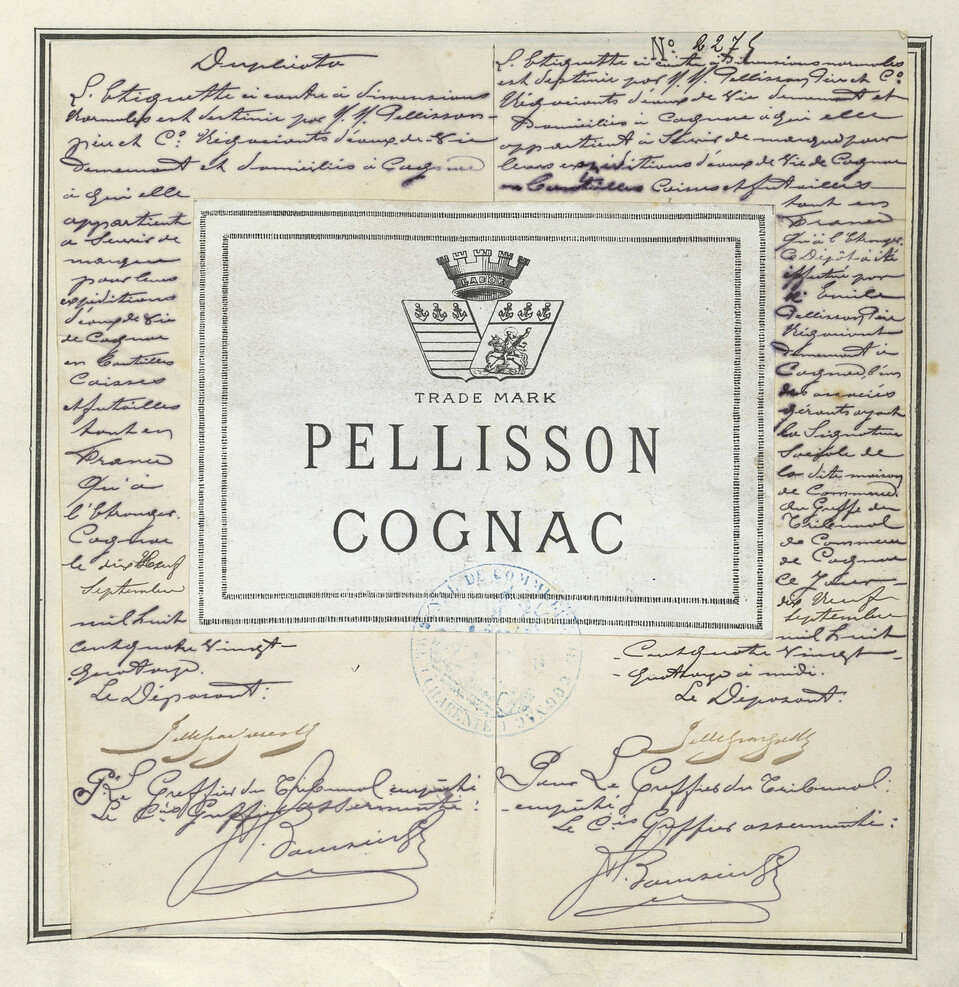 Duplicata
L'Etiquette ci contre à dimensions
Normales est destinée par M.M. Pellisson
père et Cº. Négociants d'eaux-de-Vie
demeurant et domiciliés à Cognac
à qui elle
appartient
à Servir de
marque
pour leurs
expéditions
d'eaux de Vie
de Cognac
en Bouteilles
Caisses
et futailles
tant en
France
Qu'à
l'Etranger.
Cognac
le dix Neuf
Septembre
mil huit
cent quatre Vingt-
quatorze.
Le Déposant:
Pr. Le Greffier du Tribunal empêché
Le Cis Greffier assermenté:
Nº 2275
L'Etiquette ci contre à Dimensions normales
est destinée par M.M. Pellisson Père et Cº.
Négociants d'eaux de Vie demeurant et
Domiciliés à Cognac à qui elle
appartient à Servir de marque pour
leurs expéditions d'eaux de Vie de Cognac
en Bouteilles Caisses et futailles
tant en
France
Qu'à l'Etranger.
Ce Dépôt a été
effectué par
Mr Emile
Pellisson Père
Négociant
demeurant à
Cognac, l'un
des associés
gérants ayant
la Signature
Sociale de
la dite maison
de Commerce
au Greffe du
Tribunal
de Commerce
de Cognac
Ce Jour-
dix Neuf
Septembre
mil huit
- Cent quatre Vingt-
- quatorze à midi.
Le Déposant.
Pour Le Greffier du Tribunal:
-empêché
Le Cis Greffier assermenté:
LABOR
TRADE MARK
PELLISSON
COGNAC
TRIBUNAL DE COMMERCE DE COGNAC (CHARENTE)